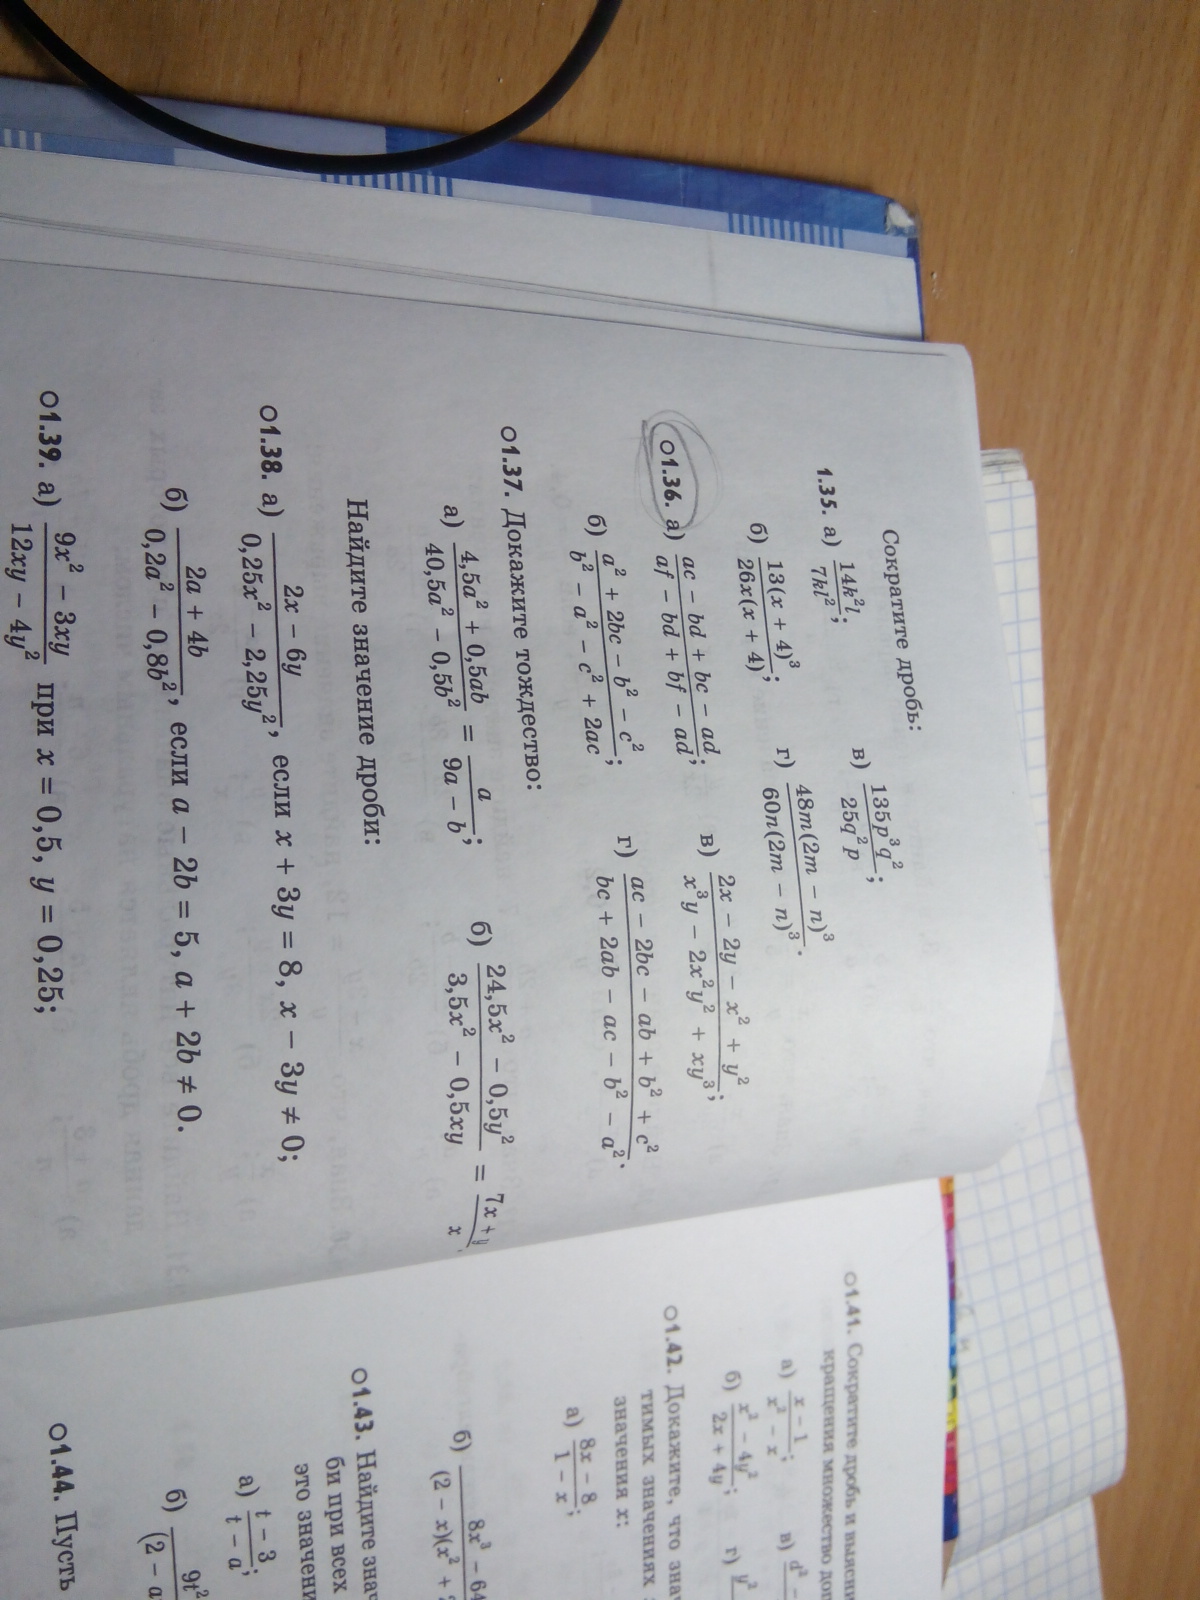 Сократите дробь:
1.35. а) 14k²l / 7kl²; в) 135p³q² / 25q²p;
б) 13(x + 4)³ / 26x(x + 4); г) 48m(2m − n)³ / 60n(2m − n)³.
1.36. а) ac − bd + bc − ad / af − bd + bf − ad; в) 2x − 2y − x² + y² / x³y − 2x²y² + xy³;
б) a² + 2bc − b² − c² / b² − a² − c² + 2ac; г) ac − 2bc − ab + b² + c² / bc + 2ab − ac − b² − a².
1.37. Докажите тождество:
а) 4,5a² + 0,5ab / 40,5a² − 0,5b² = a / 9a − b; б) 24,5x² − 0,5y² / 3,5x² − 0,5xy = 7x + y / x.
Найдите значение дроби:
1.38. а) 2x − 6y / 0,25x² − 2,25y², если x + 3y = 8, x − 3y ≠ 0;
б) 2a + 4b / 0,2a² − 0,8b², если a − 2b = 5, a + 2b ≠ 0.
1.39. а) 9x² − 3xy / 12xy − 4y² при x = 0,5, y = 0,25;
1.41. Сократите дробь и
кращения множество
а) x − 1 / x² − x; в)
б) x² − 4y² / 2x + 4y; г)
1.42. Докажите, что
тимых значениях
значения x:
а) 8x − 8 / 1 − x;
б) 8x³ − 64 / (2 − x)(x² +
1.43. Найдите
би при всех
это
а) t − 3 / t − a;
б) 9t² / (2 − a
1.44. Пусть